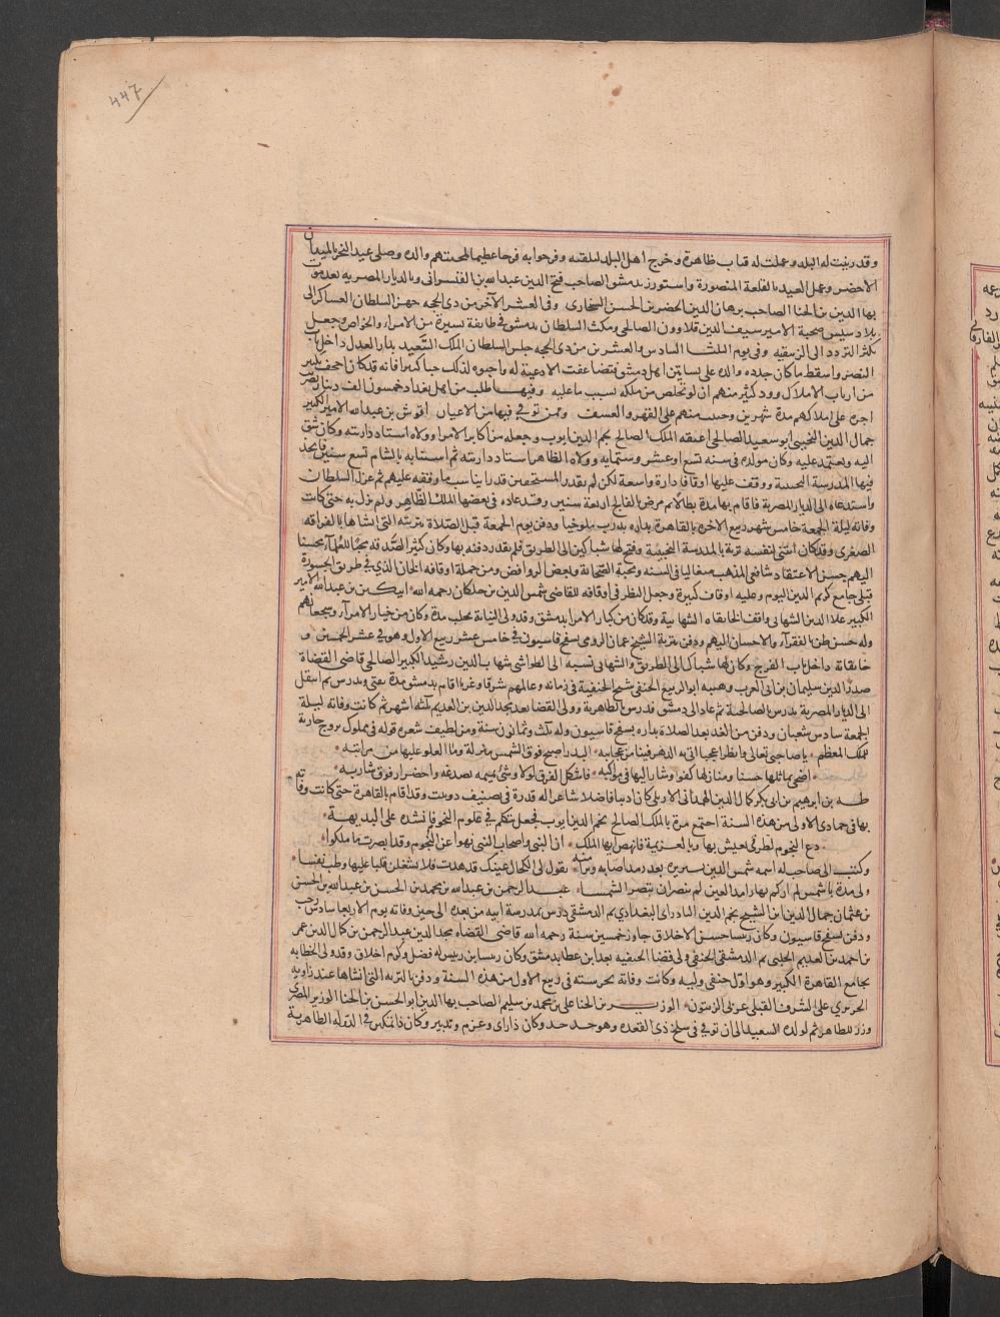 ٤٤٧
وقد زينت له البلد وعملت له قباب ظاهرة وخرج اهل البلد لتلقيه وفرحوا به فرحا عظيما لمحبتهم والده وصلى عيد النحر بالميدان
الاخضر وعمل العيد بالقلعة المنصورة واستوزر بدمشق الصاحب فتح الدين عبد الله بن القيسراني وبالديار المصريه بعد موت
بها الدين بن الحنا الصاحب برهان الدين الخضر بن الحسن السنجاري وفى العشر الآخر من ذى الحجه جهز السلطان العساكر الى
بلاد سيس صحبة الامير سيف الدين قلاوون الصالحى ومكث السلطان بدمشق فى طائفة يسيرة من الامراء والخواص وجعل
يكثر التردد الى الزنبقيه وفى يوم الثلثا السادس والعشرين من ذى الحجه جلس السلطان الملك السعيد بدار العدل داخل باب
النصر واسقط ما كان جدده والده على بساتين اهل دمشق فتضاعفت الادعية له واحبوه لذلك حبا كبيرا فانه قد كان اجحف بكثير
من ارباب الاملاك وود كثير منهم ان لو تخلص من ملكه بسبب ما عليه وفيها طلب من اهل بغداد خمسون الف دينار
اجره على املاكهم مدة شهرين وحسب منهم على القهر والعسف وممن توفى فيها من الاعيان اقوش بن عبد الله الامير الكبير
جمال الدين النجيبى ابو سعيد الصالحى اعتقه الملك الصالح نجم الدين ايوب وجعله من اكابر الامراء وولاه استاد دارته وكان يثق
اليه ويعتمد عليه وكان مولده فى سنه تسع او عشر وستمايه وولاه الظاهر استاد دارته ثم استنابه بالشام تسع سنين فاتخذ
فيها المدرسة النجيبية ووقف عليها اوقافا دارة واسعة لكن لم يقدر للمستحقين قدرا يناسب ما وقفه عليهم ثم عزله السلطان
واستدعاه الى الديار المصرية فاقام بها مدة بطالا ثم مرض بالفالج اربعة سنين وقد عاده فى بعضها الملك الظاهر ولم يزل به حتى كانت
وفاته ليلة الجمعة خامس شهر ربيع الاخره بالقاهرة بداره بدرب ملوخيا ودفن يوم الجمعة قبل الصلاة بتربته التى انشاها بالقرافة
الصغرى وقد كان ابتنى لنفسه تربة بالمدرسة النجيبية وفتح لها شباكين الى الطريق فلم يقدر دفنه بها وكان كثير الصدقه محبا للعلمآء محسنا
اليهم حسن الاعتقاد شافعى المذهب متغاليا فى السنه ومحبة الصحابة وبغض الروافض ومن جملة اوقافه الخان الذى فى طريق الجسورة
قبلى جامع كريم الدين اليوم وعليه اوقاف كبيرة وجعل النظر فى اوقافه للقاضى شمس الدين بن خلكان رحمه الله ايبك بن عبد الله الامير
الكبير علا الدين الشهابى واقف الخانقاه الشهابية وقد كان من كبار الامراء بدمشق وقد ولى النيابة بحلب مدة وكان من خيار الامرآء وشجعانهم
وله حسن ظن بالفقرآء والاحسان اليهم ودفن بتربة الشيخ عثمان الرومى بسفح قاسيون فى خامس عشر ربيع الاول وهو فى عشر الخمسين و
خانقاته داخل باب الفرج وكان لها شباك الى الطريق والشهابى نسبة الى الطواشى شهاب الدين رشيد الكبير الصالحى قاضى القضاة
صدر الدين سليمان بن ابى العز بن وهيب ابو الربيع الحنفى شيخ الحنفية فى زمانه وعالمهم شرقا وغربا اقام بدمشق مدة يفتى ويدرس ثم انتقل
الى الديار المصرية يدرس بالصالحية ثم عاد الى دمشق فدرس بالظاهرية وولى القضا بعد مجد الدين بن العديم ثلثه اشهر ثم كانت وفاته ليلة
الجمعة سادس شعبان ودفن من الغد بعد الصلاة بداره بسفح قاسيون وله ثلث وثمانون سنة ومن لطيف شعره قوله فى مملوك تزوج جارية
للملك المعظم • يا صاحبى تعالى وانظرا عجبا اتى به الدهر فينا من عجايبه • البدر اصبح فوق الشمس منزلة وما العلو عليها من مراتبه •
• اضحى يماثلها حسنا ومنازلها كفوا وشار اليها فى مواكبه • فاشكل الفرق لولا وشى نميمه بصدغه واخضرار فوق شاربه •
طــه بن ابرهيم بن ابى بكر كمال الدين الهمذانى الاربلى كان اديبا فاضلا شاعرا له قدرة فى تصنيف دوبيت وقد اقام بالقاهرة حتى كانت وفاته
بها فى جمادى الاولى من هذه السنة اجتمع مرة بالملك الصالح نجم الدين ايوب فجعل يتكلم فى علوم النجوم فانشده على البديهة •
• دع النجوم لطرقى يعيش بها وبالعزيمة فانهض ايها الملك • ان النبى واصحاب النبى نهوا عن النجوم وقد ابصرت ما ملكوا •
وكتب الى صاحب له اسمه شمس الدين يستزيره بعد رمد اصابه وبرأ منه • يقول لى الكحال عينك قد هدت فلا تشغلن قلبا عليها وطب نفسا •
ولى مدة يا شمس لم اركم بها وامد العين لم تبصران تبصر الشمسا • عبــد الرحمن بن عبد الله بن محمد بن الحسن بن عبد الله بن الحسن
بن عثمان جمال الدين ابن الشيخ نجم الدين البادراى البغدادى ثم الدمشقى درس بمدرسة ابيه من بعده الى حين وفاته يوم الاربعا سادس رجب
ودفن بسفح قاسيون وكان رييسا حسن الاخلاق جاوز خمسين سنة رحمه الله قاضى القضاه مجد الدين عبد الرحمن بن كمال الدين عمر
بن احمد بن العديم الحلبى ثم الدمشقى الحنفى ولى قضا الحنفيه بعد ابن عطا بدمشق وكان رييسا بن رييس له فضل وكرم اخلاق وقد ولى الخطابه
بجامع القاهرة الكبير وهو اول حنفى وليه وكانت وفاته بجوسقه فى ربيع الاول من هذه السنة ودفن بالتربه التى انشاها عند زاويه
الحريرى على الشرف القبلى غربى الزيتون • الوزيــر بن الحنا على بن محمد بن سليم الصاحب بها الدين ابو الحسن بن الحنا الوزير المصرى
وزر للظاهر ثم لولده السعيد الى ان توفى فى سلخ ذى القعده وهو جد جد وكان ذا راى وعزم وتدبير وكان ذا تمكن فى الدوله الظاهرية